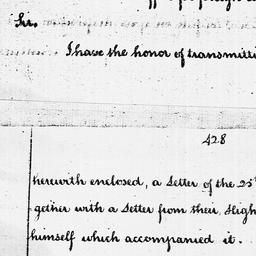 Sir.
I have the honor of transmitti
428
herewith enclosed, a Letter of the 25
gether with a Letter from their High
himself which accompanied it.